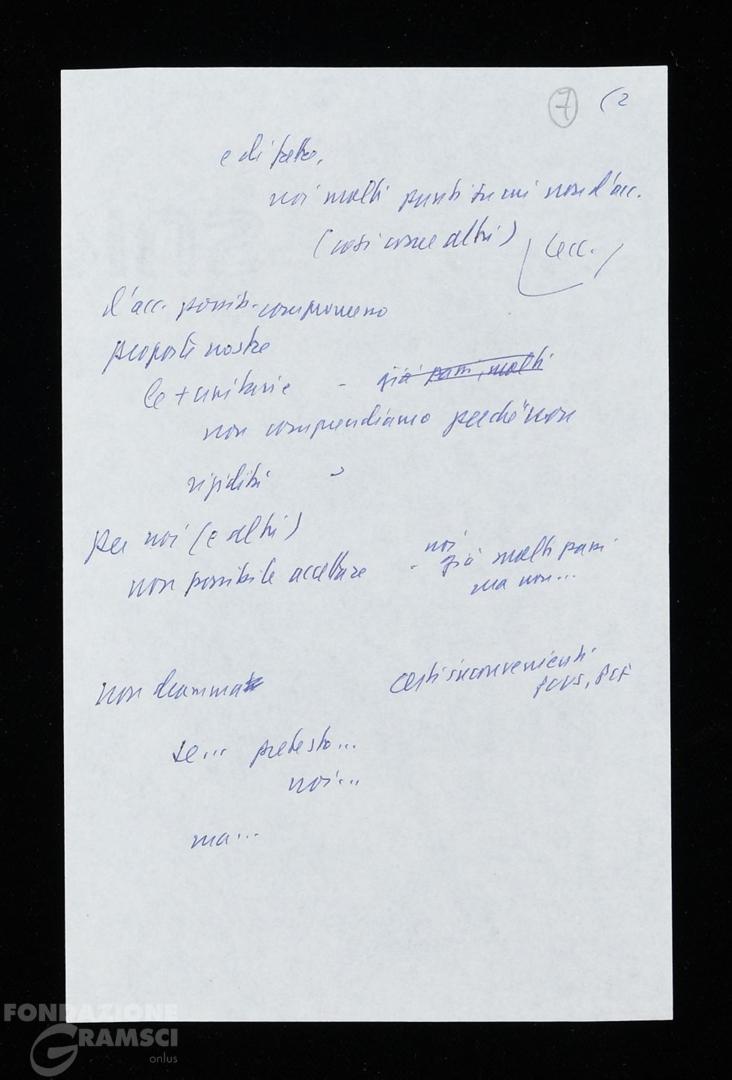 7 (2
e di fatto,
noi molti punti su cui non d'acc.
(così come altri) (ecc.)
d'acc. possib. compromesso
proposte nostre
le + unitarie - già passi, molti
non comprendiamo perché non
rigidità
per noi (e altri)
non possibile accettare - noi già molti passi
ma non...
non dramma
certi inconvenienti
PCUS, PCF
se... pretesto...
noi...
ma...
FONDAZIONE
GRAMSCI
onlus